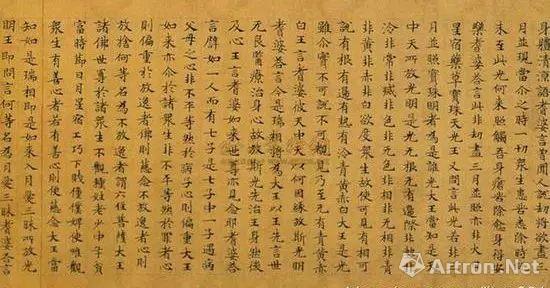 身體清涼語耆婆言曾聞人說劫將欲盡三
月並現當尒之時一切衆生患苦悉除時既
未至此光何來照觸吾身瘡苦除愈身得安
樂耆婆荅言此非劫盡三月並照亦非火日
星宿藥草寶珠天光王又問言此光若非三
月並照寶珠明者為是誰光大王當知是天
中天所放光明是光无根无有邊際非熱非
冷非常非滅非色非无色非相非无相非青
非黃非赤非白欲度衆生故使可見有相可
說有根有邊有熱有冷青黃赤白大王是光
雖尒實不可說不可覩見乃至无有青黃赤
白王言耆婆彼天中天以何因緣放斯光明
耆婆荅言今是瑞相將為大王以王先言世
无良醫療治身心故放斯光先治王身然後
及心王言耆婆如來世尊亦見念耶耆婆荅
言譬如一人而有七子是七子中一子遇病
父母之心非不平等然於病子心則偏重大王
如來亦尒於諸衆生非不平等然於罪者心
則偏重於放逸者佛則慈念不放逸者心則
放捨何等名為不放逸者謂六住菩薩大王
諸佛世尊於諸衆生不觀種姓老少中年貧
富時節日月星宿工巧下賤僮僕婢使唯觀
衆生有善心者若有善心則便慈念大王當
知如是瑞相即是如來入月愛三昧所放光
明王即問言何等名為月愛三昧耆婆荅言
Artron.Net